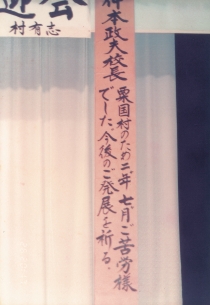 迎会
村有志
仲本政夫校長
粟国村のため二ヶ年七ヶ月ご苦労様
でした。今後のご発展を祈る。